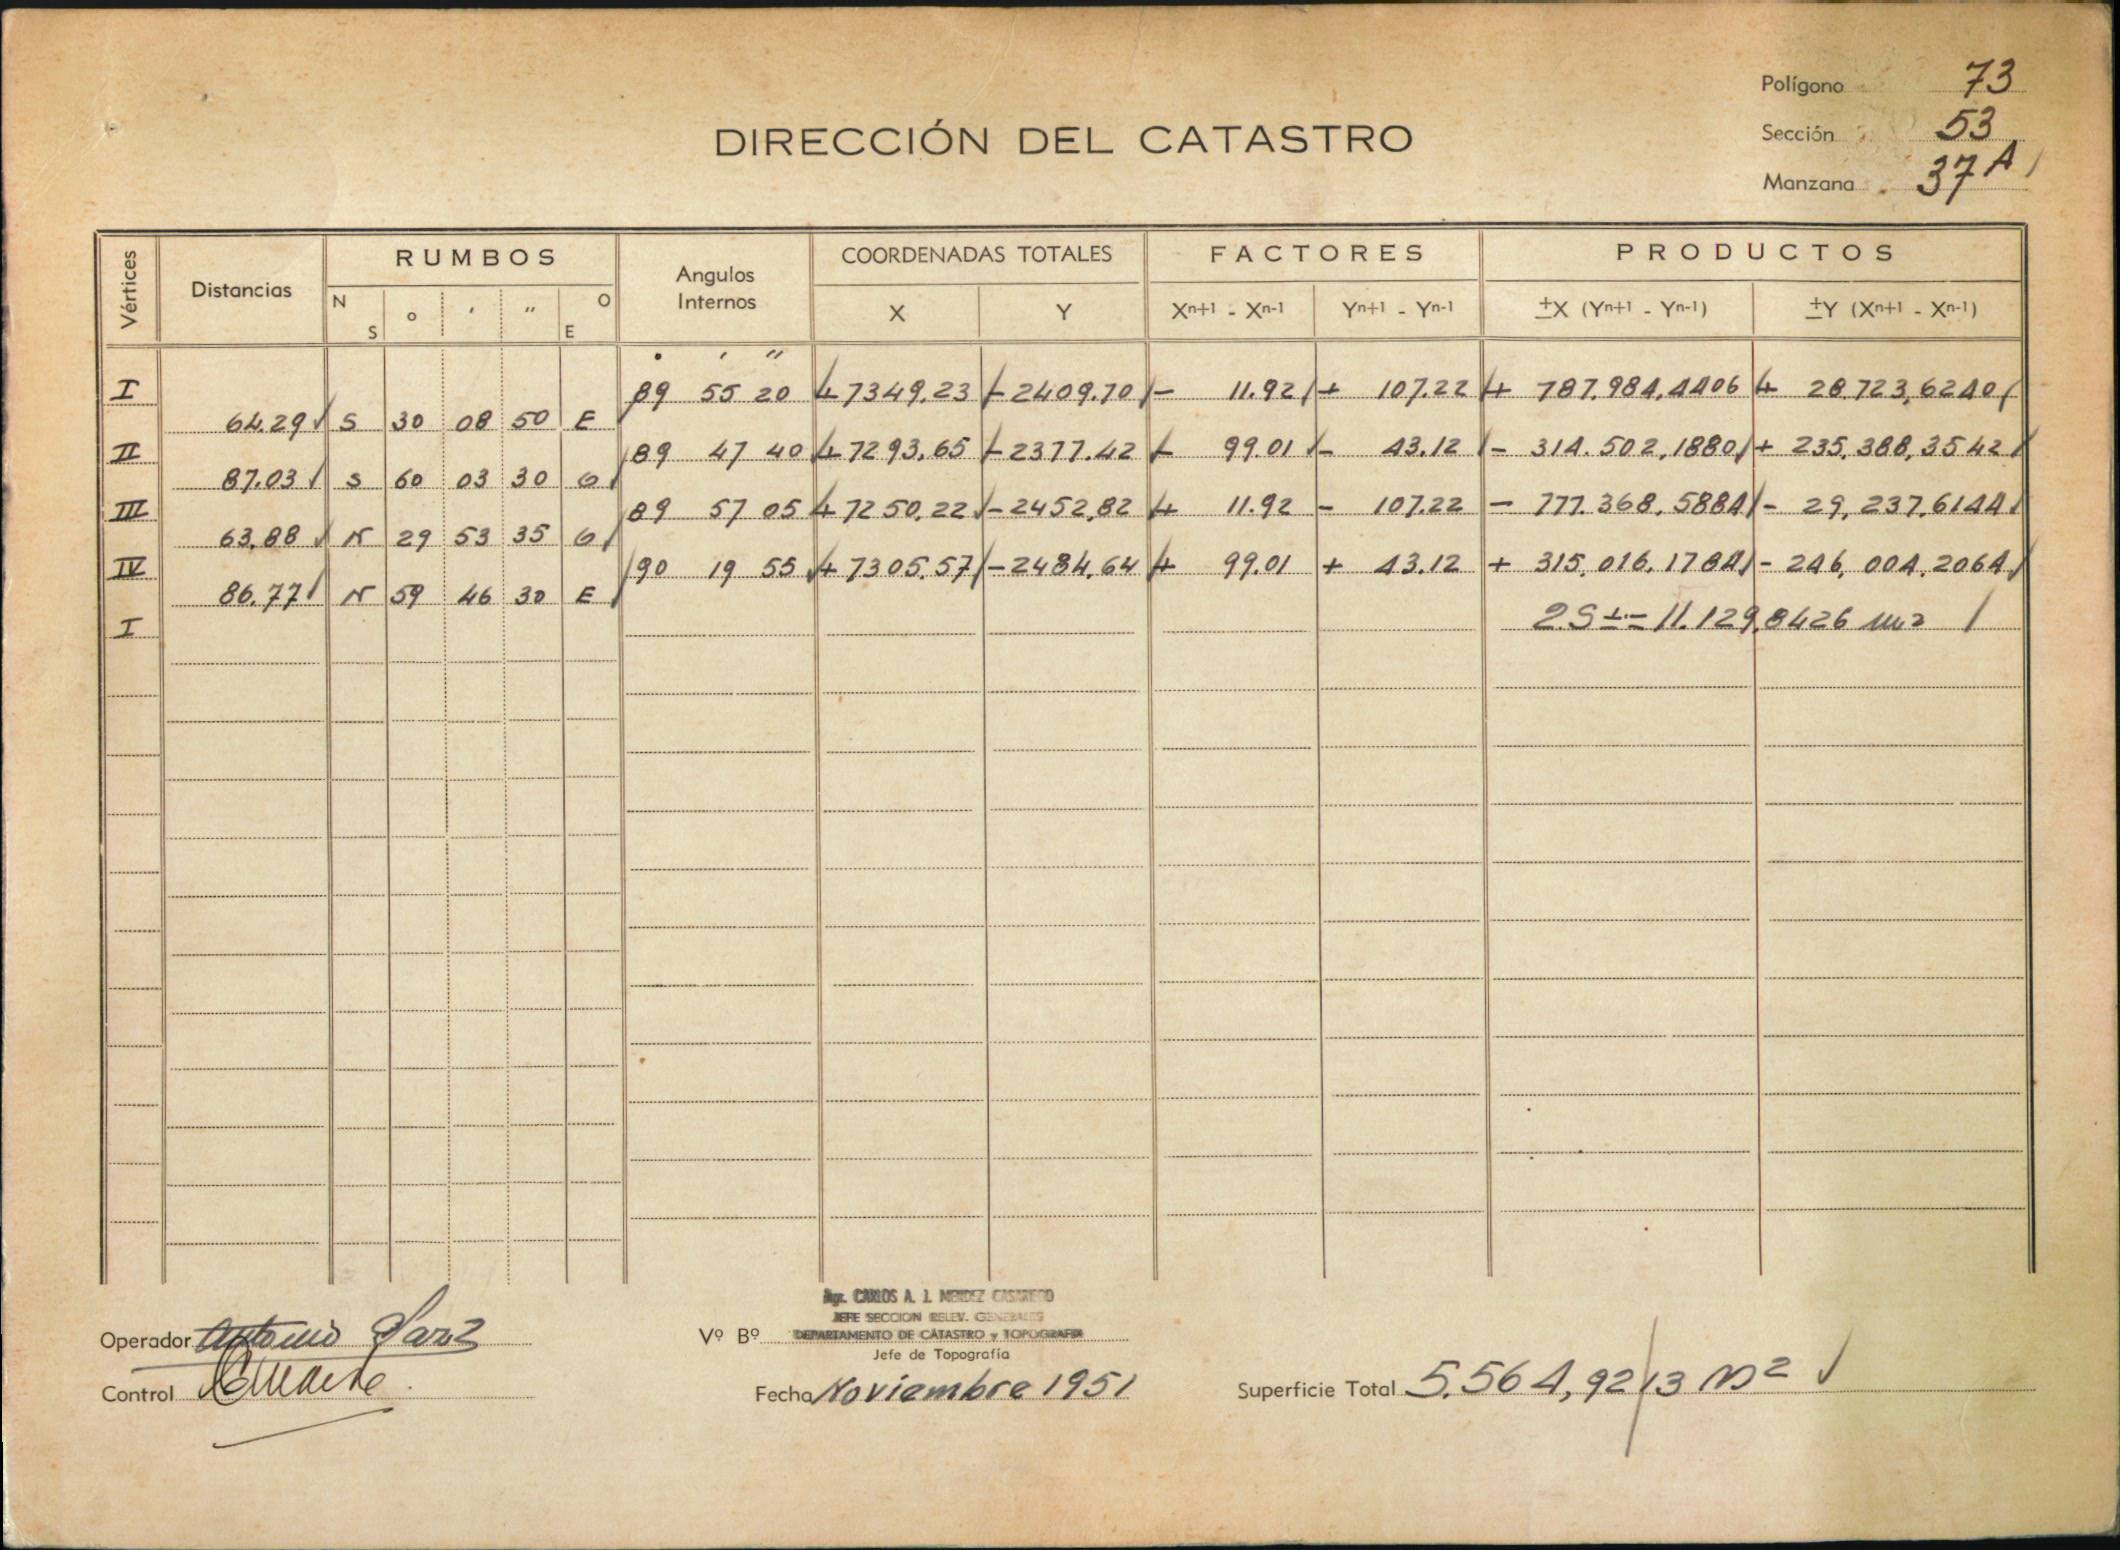 Polígono 73
Sección 53
Manzana 37 A
DIRECCIÓN DEL CATASTRO
Vértices Distancias RUMBOS Angulos Internos COORDENADAS TOTALES FACTORES PRODUCTOS
N S o ' " O E X Y Xn+1 - Xn-1 Yn+1 - Yn-1 ±X (Yn+1 - Yn-1) ±Y (Xn+1 - Xn-1)
° ' "
I 89 55 20 + 7349.23 - 2409.70 - 11.92 + 107.22 + 787.984,4406 + 28.723,6240
64.29 S 30 08 50 E
II 89 47 40 + 7293.65 - 2377.42 - 99.01 - 43.12 - 314.502,1880 + 235.388,3542
87.03 S 60 03 30 O
III 89 57 05 + 7250.22 - 2452,82 + 11.92 - 107.22 - 777.368,5884 - 29,237,6144
63.88 N 29 53 35 O
IV 90 19 55 + 7305.57 - 2484,64 + 99.01 + 43.12 + 315,016,1784 - 246,004,2064
86.77 N 59 46 30 E
I 2S ± = 11.129,8426 m2
Agr. CARLOS A. J. MENDEZ CASARIEGO
JEFE SECCION RELEV. GENERALES
Operador Antonio Vº Bº DEPARTAMENTO DE CATASTRO y TOPOGRAFIA
Jefe de Topografía
Control Fecha Noviembre 1951 Superficie Total 5.564,9213 m2